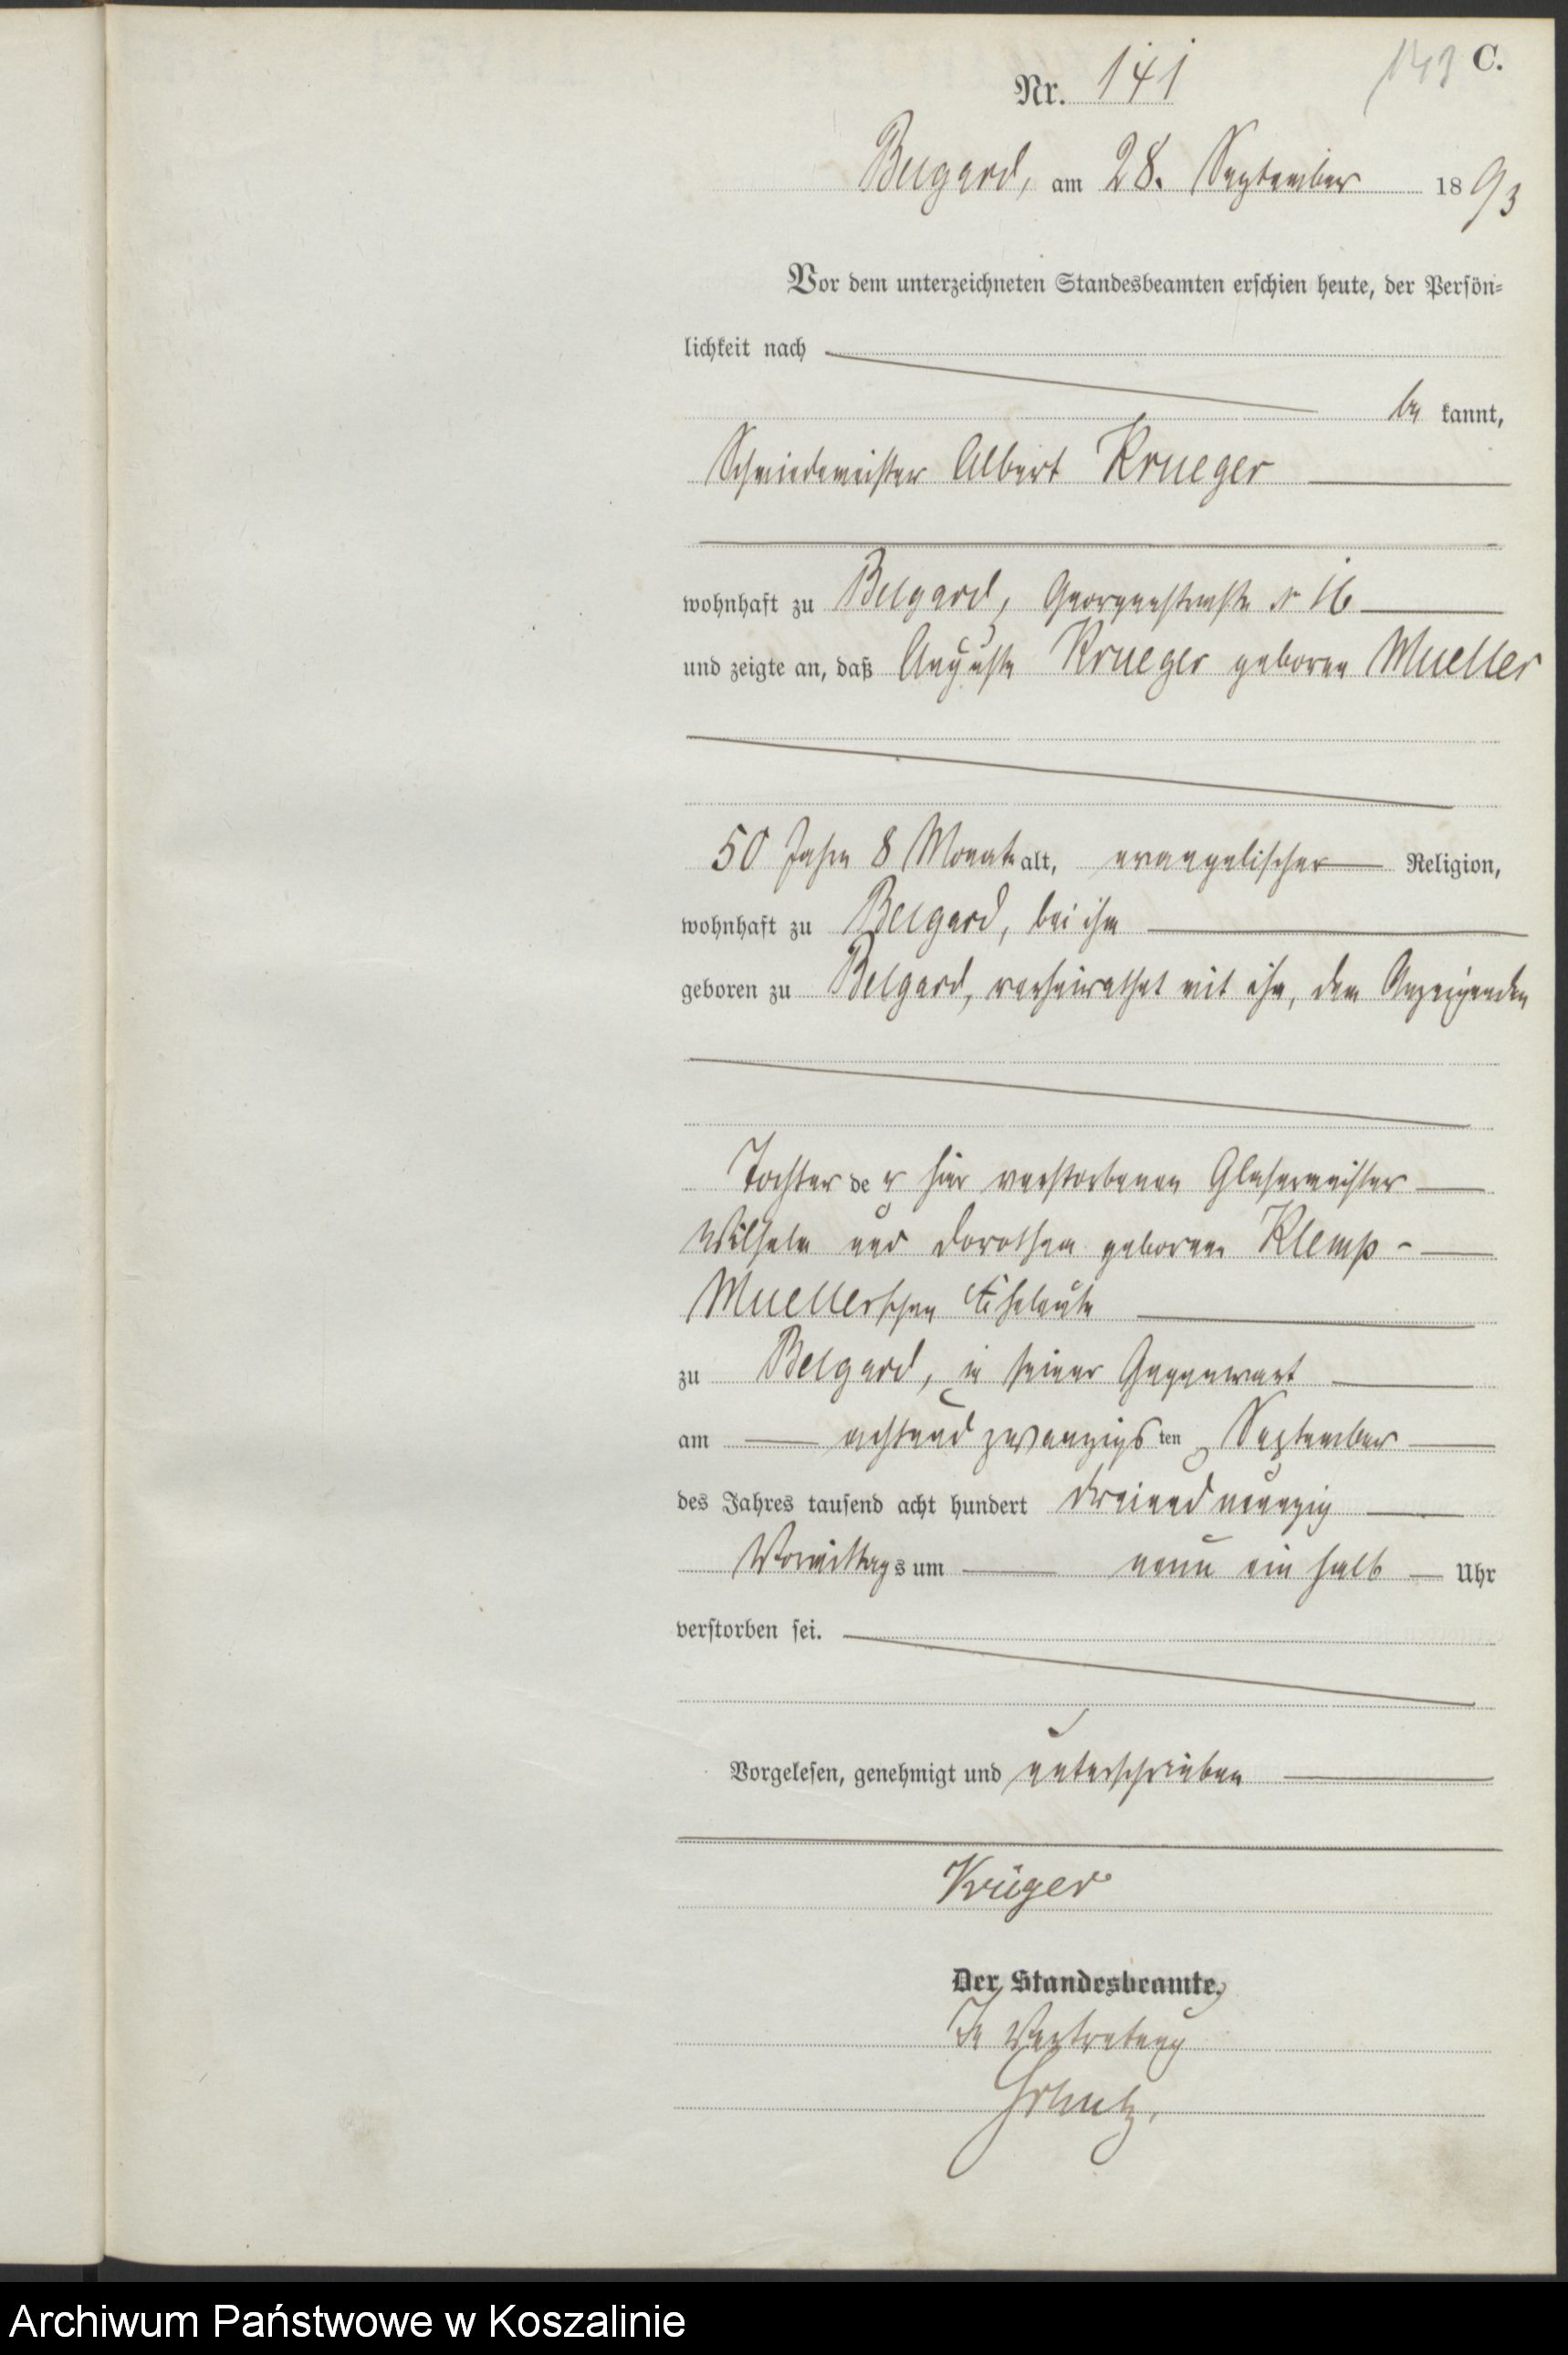 143 C.
Nr. 141
Belgard, am 28. September 1893
Vor dem unterzeichneten Standesbeamten erschien heute, der Persön-
lichkeit nach
be kannt,
Schmiedemeister Albert Krueger
wohnhaft zu Belgard, Georgenstraße № 16
und zeigte an, daß Auguste Krueger geborene Mueller
50 Jahre 8 Monate alt, evangelischer Religion,
wohnhaft zu Belgard, bei ihm
geboren zu Belgard, verheirathet mit ihm, dem Anzeigenden
Tochter der hier verstorbenen Glasermeister
Wilhelm und Dorothea geborene Klemp-
Muellerschen Eheleute
zu Belgard, in seiner Gegenwart
am achtundzwanzigsten September
des Jahres tausend acht hundert dreiundneunzig
Vormittags um neun ein halb Uhr
verstorben sei.
Vorgelesen, genehmigt und unterschrieben
Krüger
Der Standesbeamte.
In Vertretung
Archiwum Państwowe w Koszalinie